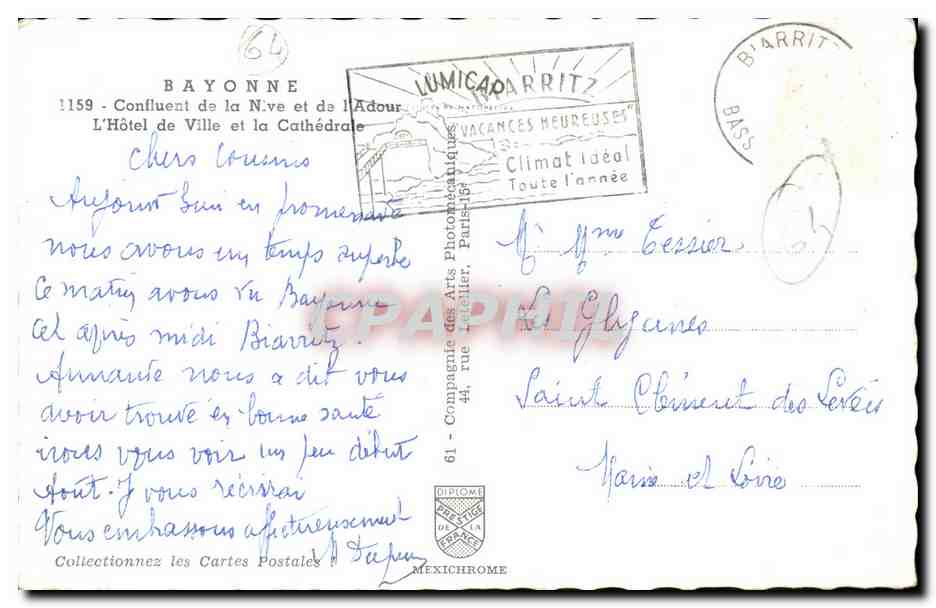 64
BAYONNE
1159 - Confluent de la Nive et de l'Adour
L'Hôtel de Ville et la Cathédrale
LUMICAP
BIARRITZ
"VACANCES HEUREUSES"
Climat idéal
Toute l'année
BIARRITZ
BASS
Chers Cousins
Aujourd'hui en promenade
nous avons un temps superbe
Ce matin avons vu Bayonne
cet après midi Biarritz.
nous a dit vous
avoir trouvé en bonne santé
irons vous voir un peu début
Août. J vous récrirai
Vous embrassons affectueusement
Collectionnez les Cartes Postales !
61 - Compagnie des Arts Photomécaniques
44, rue Letellier, Paris-15e
CPAPHIL
DIPLOME
PRESTIGE
DE LA
FRANCE
MEXICHROME
Mr Mme Tessier
Saint Clément des Levées
Maine et Loire